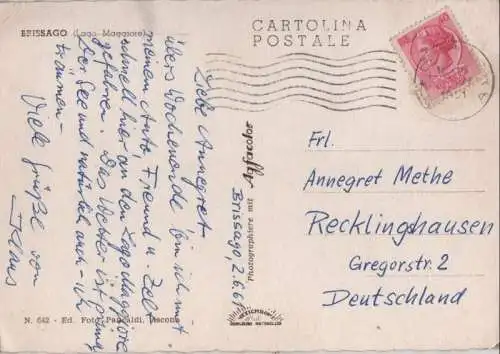 BRISSAGO (Lago Maggiore)
CARTOLINA
POSTALE
Liebe Annegret
übers Wochenende bin ich mit
meinen Auto, Freund u. Zelt
schnell hier an den Lago Maggiore
gefahren. Das Wetter ist
Der See und natürlich auch - ich
träumen -
Viele Grüße von
Klaus
Brissago, 2.6.6
Photographiere mit Agfacolor
Frl.
Annegret Methe
Recklinghausen
Gregorstr. 2
Deutschland
N. 642 - Ed. Foto Pancaldi, Ascona